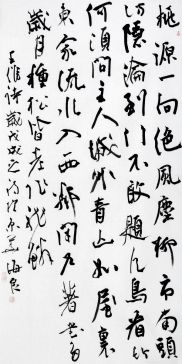 桃源一向绝風塵柳市南頭
訪隱淪到門不敢題凡鳥看竹
何須問主人城外青山如屋裏
東家流水入西鄰閉户著書多
歲月種松皆老作龍鱗
王維詩